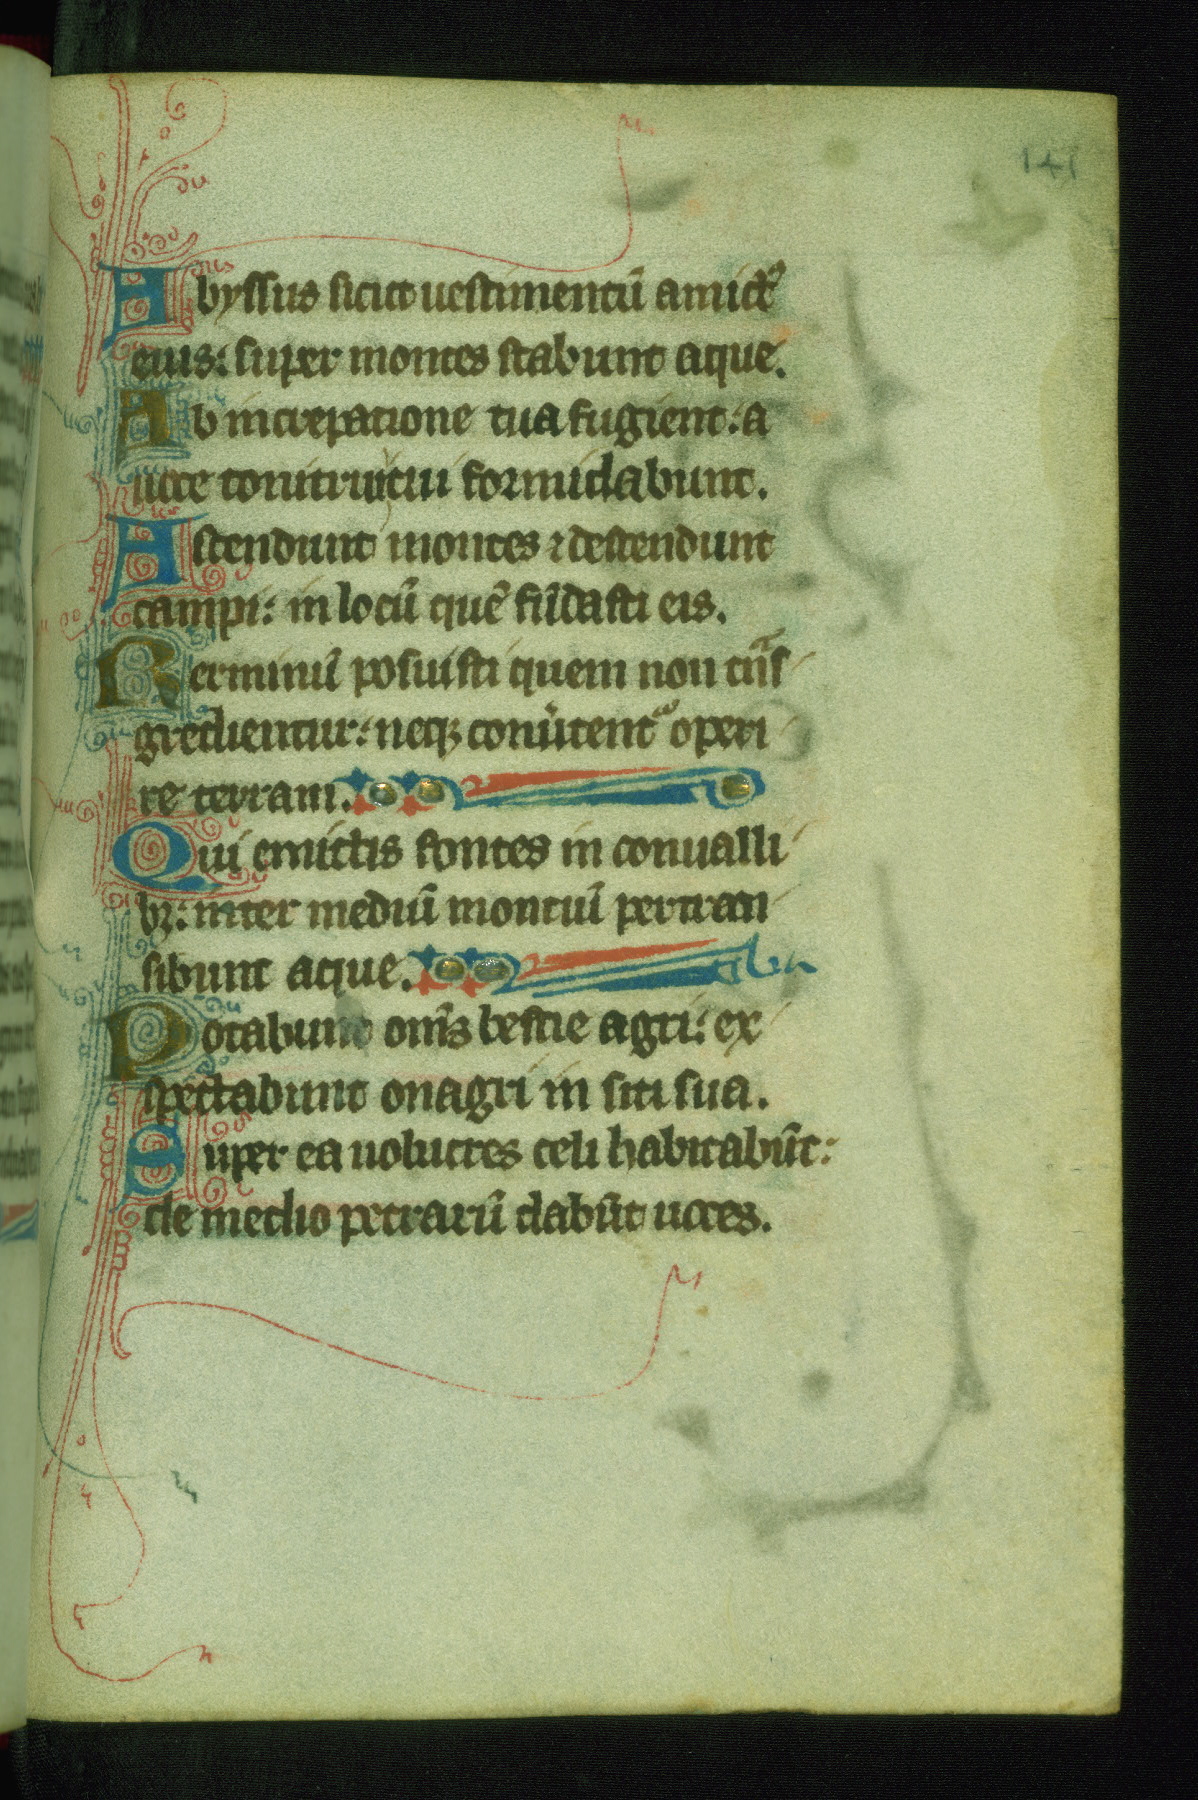 141
Abyssus sicut uestimentū amictꝰ
eius: super montes stabunt aque.
Ab increpatione tua fugient: a
uoce tonitrui tui formidabunt.
Ascendunt montes ⁊ descendunt
campi: in locū quē fūdasti eis.
Terminū posuisti quem non trāſ
gredientur: neqꝫ conūtentᷣ operi
re terram.
Qui emictis fontes in conualli
bꝫ: inter mediū montiū pertran
sibunt aque.
Potabunt om̄s bestie agri: ex
spectabunt onagri in siti sua.
Super ea uolucres celi habitabūt:
de medio petrarū dabūt uoces.